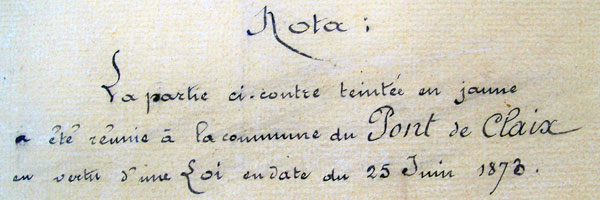 Nota :
La partie ci-contre teintée en jaune
a été réunie à la commune du Pont de Claix
en vertu d'une Loi en date du 25 Juin 1873.